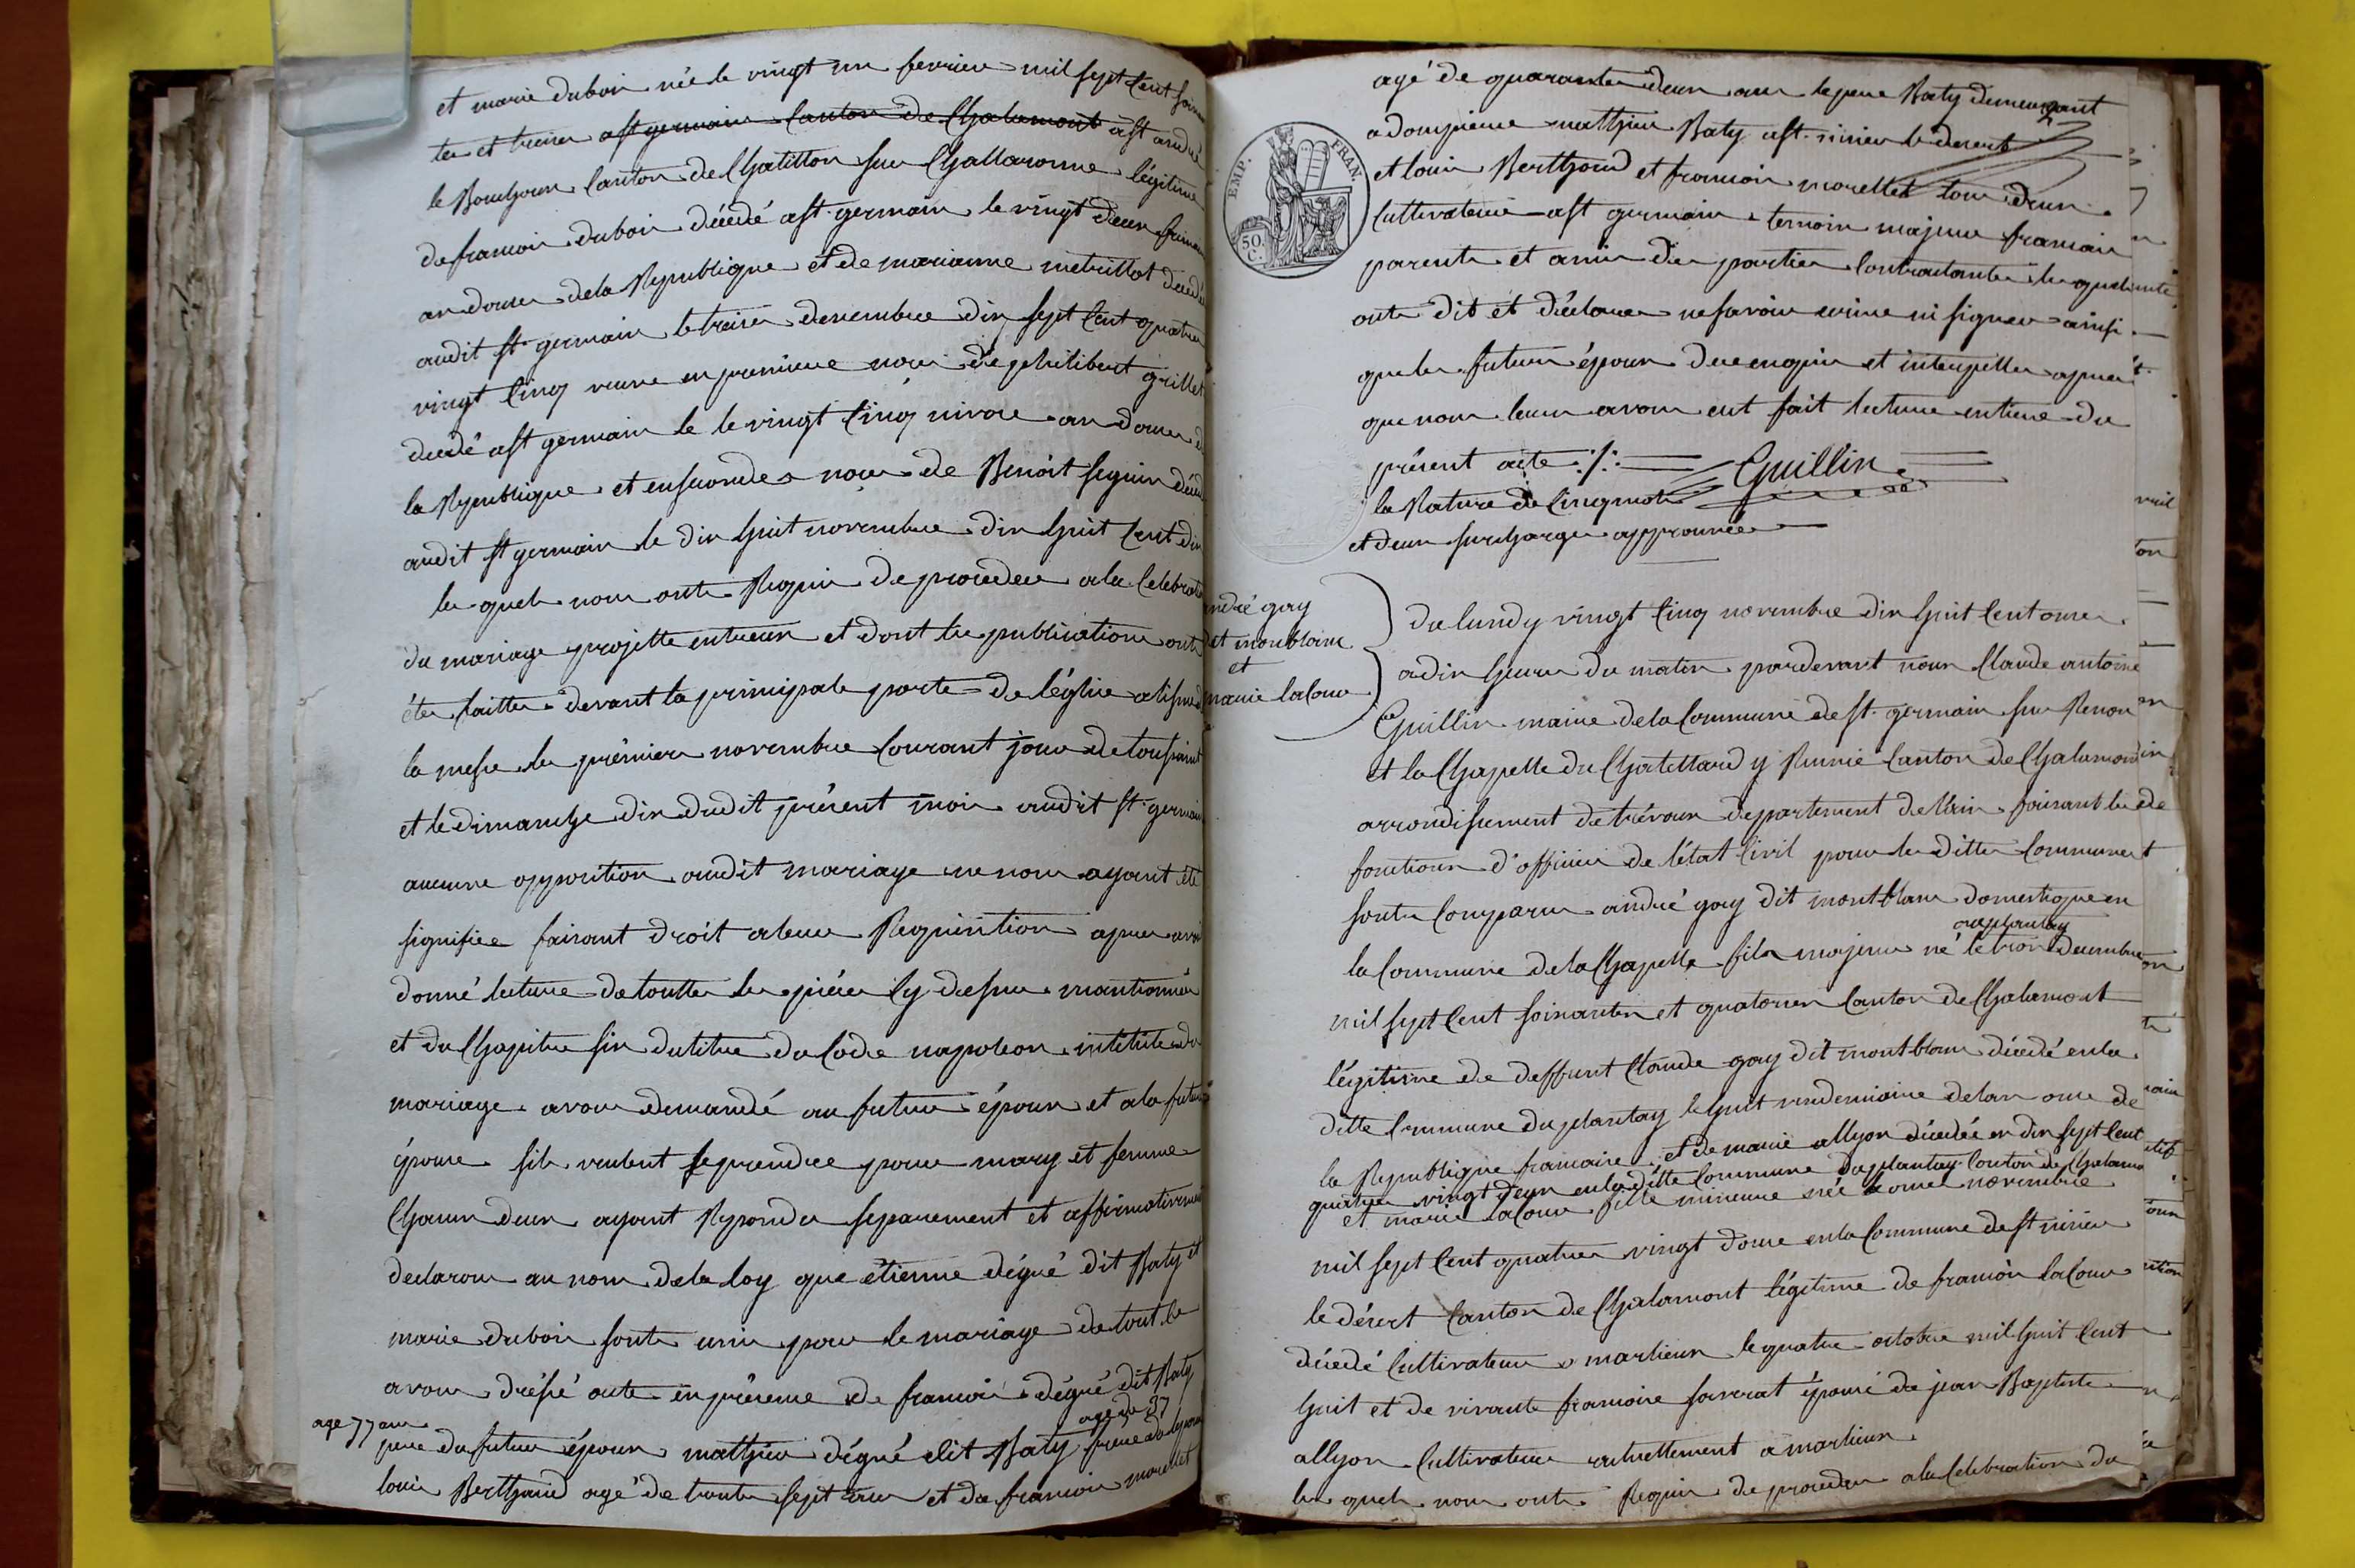 et marie dubois née le vingt un fevrier mil sept cent soixan
te et treize a st germain canton de Chalamont a st andré
le Bouchoux canton de Chatillon sur Challaronne légitime
de francois dubois décédé a st germain le vingt deux frimaire
an douze de la Republique et de marianne metrillot décédée
audit st germain le treize decembre dix sept cent quatre
vingt cinq veuve en premiere noce de philibert grillet
décédé a st germain le le vingt cinq nivose an douze de
la Republique et en secondes noces de Benoit seguin décédé
audit st germain le dix huit novembre dix huit cent dix
les quels nous onts Requis de proceder a la Celebration
du mariage projetté entreeux et dont les publications onts
étés faittes devant la principale porte de l'église a lissue de
la messe les prémier novembre Courant jour de toussaint
et le dimanche dix dudit présent mois audit st germain
aucune opposition audit mariage ne nous ayant été
signifiée faisant droit a leur Requisition apres avoir
donné lecture de touttes les piéces Cy dessus mantionnées
et du Chapitre six du titre du Code napoleon intitulé du
mariage avons demandé au futur époux et a la future
épouse sils veulent se prendre pour mary et femme
Chacun deux ayant Repondu séparement et affirmativement
declarons au nom de la loy que étienne dégué dit Baty et
marie dubois sonts unis pour le mariage de tout ce
avons drêssé acte en présence de francois dégué dit Baty
age 77 ans
agé de 37
pere du futur époux matthieu dégué dit Baty frere de lepoux
louis Berthaud agé de trente sept ans et de francois morellet
agé de quarante deux ans le pere Baty demeurant
a dompierre matthieu Baty a st. nizier le desert
et louis Berthaud et francois morellet tous deux
Cultivateurs a st germain temoins majeurs francais
parents et amis des parties Contractantes les quels
onts dit et déclarer ne savoir ecrire ni signer ainsi
que les futurs époux de ce enquis et interpellés apres
que nous leurs avons eut fait lecture entiere du
présent acte ./. Guillin
la Rature de Cinq mots
et deux surcharges approuvée
andré gay
dit montblanc
et
marie lacour
du lundy vingt Cinq novembre dix huit Cent onze
a dix heures du matin pardevant nous Claude antoine
Guillin maire de la Commune de st. germain sur Renon
et la Chapelle du Chatellard y Réunie Canton de Chalamont
arrondissement de trévoux departement de l'ain faisant les
fonctions d'officier de l'état Civil pour les dittes Communes
sonts Comparus andré gay dit montblanc domestique en
au plantay
la Commune de la Chapelle fils majeur né le trois decembre
mil sept Cent soixante et quatorze Canton de Chalamont
légitime de deffunt Claude gay dit montblanc décédé en la
ditte Commune du plantay le huit vendemiaire de lan onze de
la Republique francaise et de marie allyon décédée en dix sept Cent
quatre vingt deux en la ditte Commune du plantay Canton de Chalamont
et marie lacour fille mineure née le onze novembre
mil sept Cent quatre vingt douze en la Commune de st nizier
le désert Canton de Chalamont légitime de francois lacour
décédé Cultivateur a marlieux le quatre octobre mil huit Cent
huit et de vivante francoise favrat épouse de jean Baptiste
allyon Cultivateur actuellement a marlieux
les quels nous onts Requis de proceder a la Celebration du